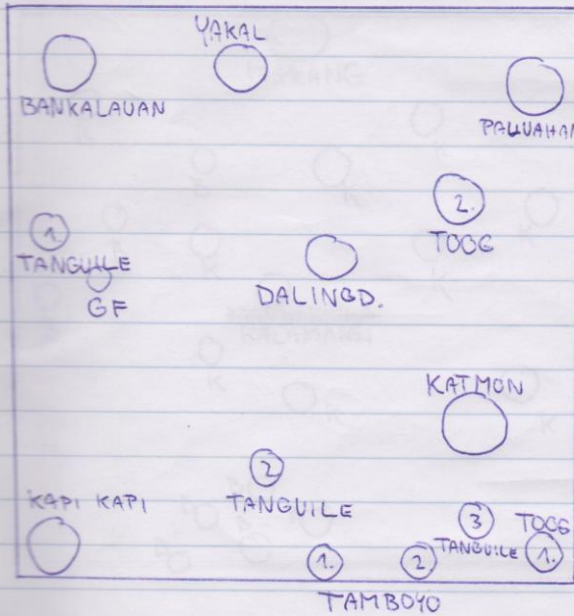 YAKAL
BANKALAUAN
PALUAHAN
2.
TOOG
1
TANGUILE
GF
DALINGD.
KATMON
2
TANGUILE
KAPI KAPI
3
TANGUILE
TOOG
1.
1.
2
TAMBOYO